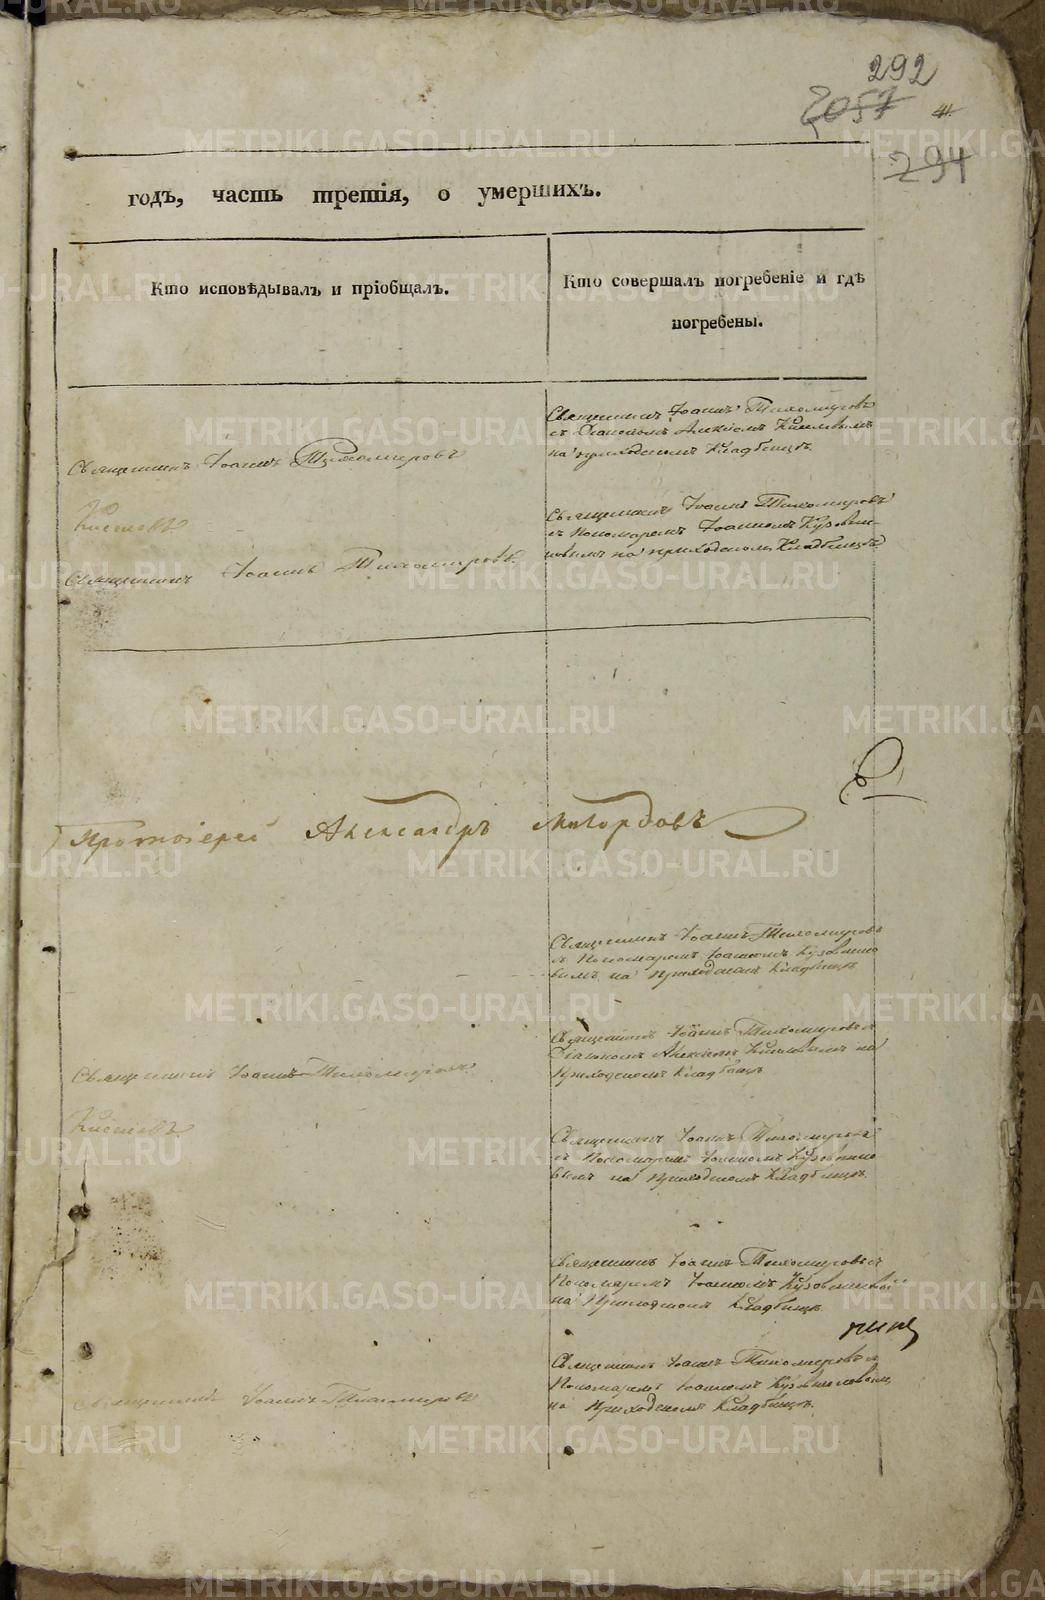 292
2057 41
294
годъ, часть третія, о умершихъ.
Кто исповѣдывалъ и пріобщалъ.
Кто совершалъ погребеніе и гдѣ
погребены.
Священникъ Іоаннъ Тихомировъ
съ Діакономъ Алексіемъ
на приходскомъ Кладбищѣ.
Священникъ Іоаннъ Тихомировъ
Священникъ Іоаннъ Тихомировъ
съ Пономаремъ Іоанномъ Кузовни-
ковымъ на приходскомъ Кладбищѣ.
Священникъ Іоаннъ Тихомировъ.
Протоіерей Александръ
Священникъ Іоаннъ Тихомировъ
съ Пономаремъ Іоанномъ Кузовнико
вымъ на Приходскомъ Кладбищѣ
Священникъ Іоаннъ Тихомировъ съ
Діакономъ Алексіемъ на
Приходскомъ Кладбищѣ
Священникъ Іоаннъ Тихомировъ.
Священникъ Іоаннъ Тихомировъ
съ Пономаремъ Іоанномъ Кузовнико
вымъ на Приходскомъ Кладбищѣ.
Священникъ Іоаннъ Тихомировъ съ
Пономаремъ Іоанномъ
на Приходскомъ Кладбищѣ.
Священникъ Іоаннъ Тихомировъ съ
Пономаремъ Іоанномъ Кузовниковым,
на Приходскомъ Кладбищѣ.
Священникъ Іоаннъ Тихомировъ
METRIKI.GASO-URAL.RU